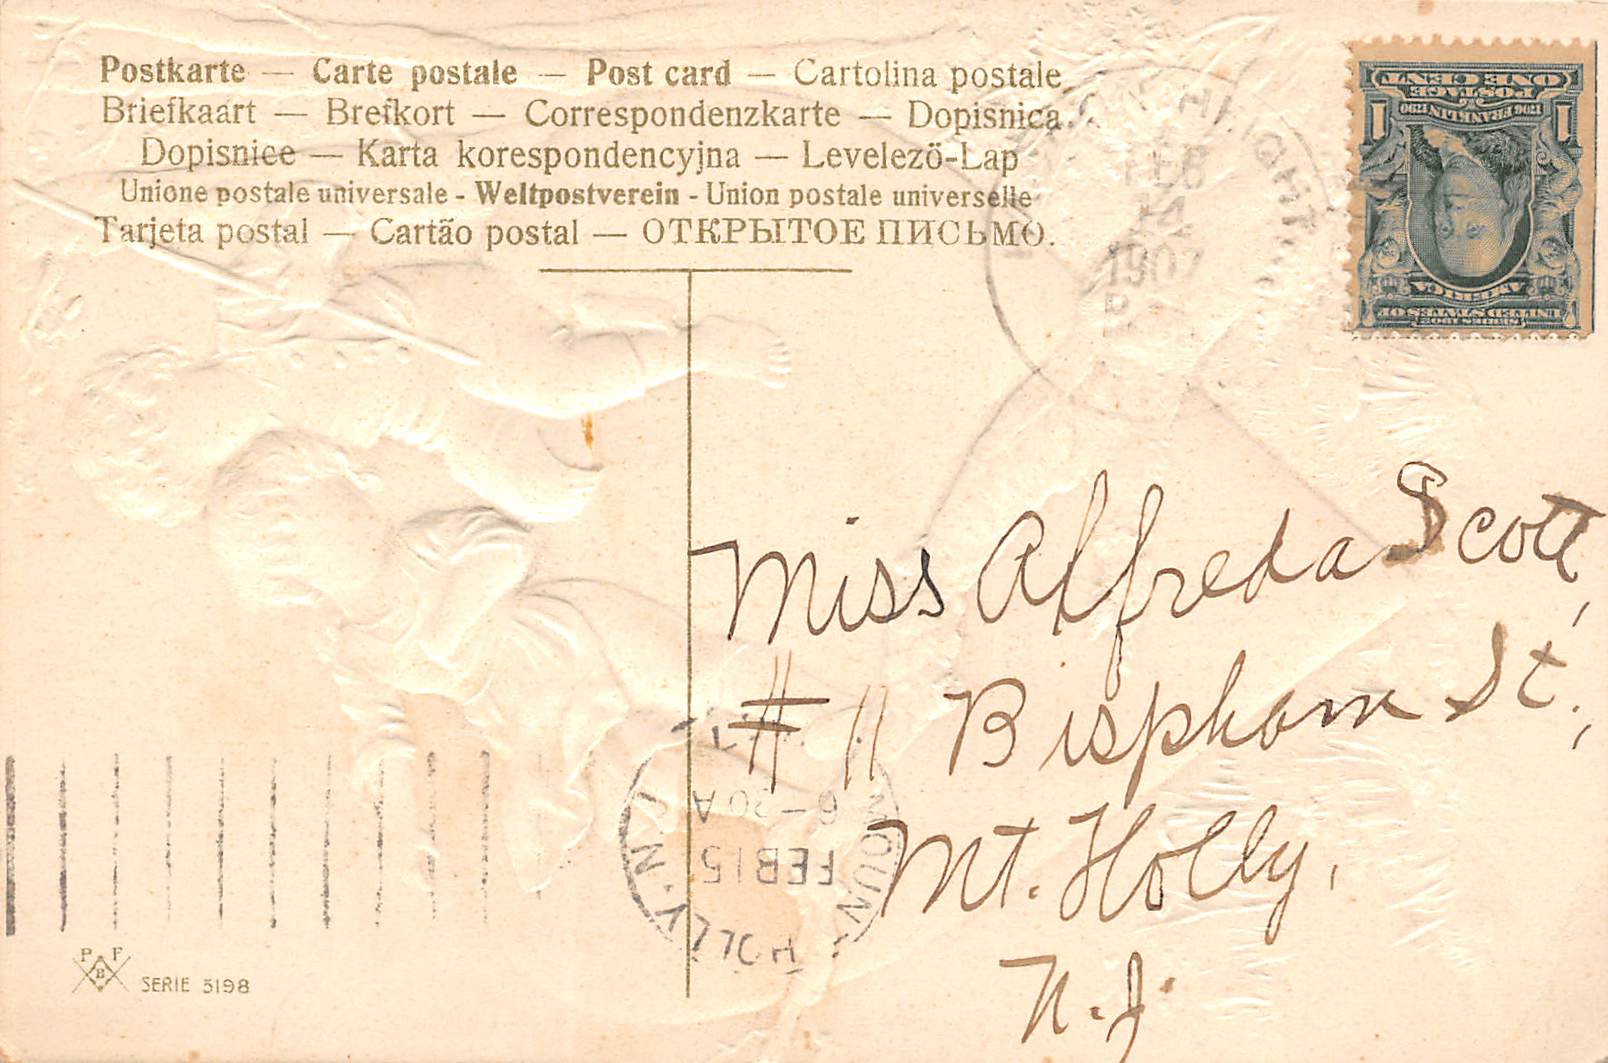 Postkarte — Carte postale — Post card — Cartolina postale
Briefkaart — Brefkort — Correspondenzkarte — Dopisnica
Dopisnice — Karta korespondencyjna — Levelezö-Lap
Unione postale universale - Weltpostverein - Union postale universelle
Tarjeta postal — Cartão postal — ОТКРЫТОЕ ПИСЬМО.
FEB
14
1907
ONE CENT
POSTAGE
1 FRANKLIN 1
AMERICA
SERIES 1902
UNITED STATES OF
Miss Alfreda Scott,
# 11 Bispham St.,
Mt. Holly,
N.J.
MOUNT HOLLY. N.J.
FEB 15
6-30A
P F
B
SERIE 5198